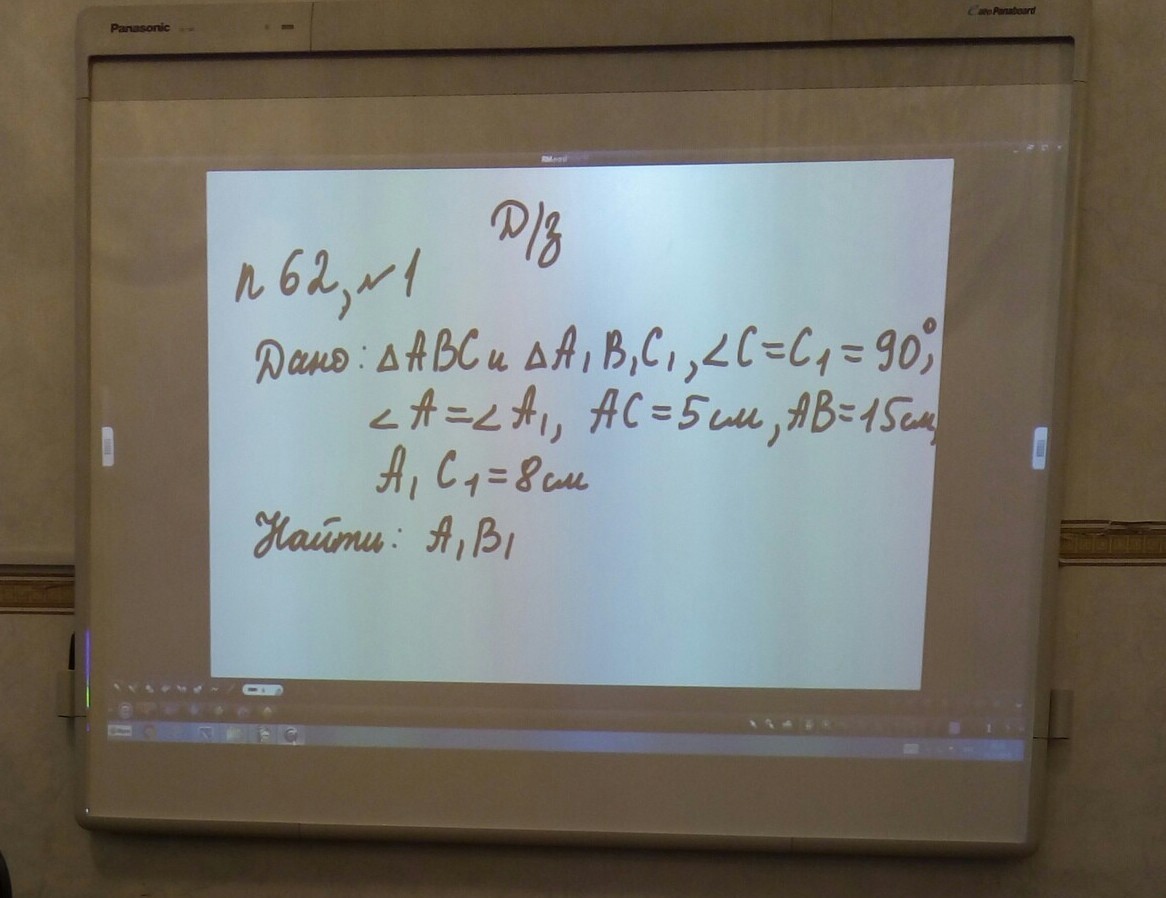 Panasonic
elite Panaboard
Д/з
п 62, №1
Дано: ΔABC и ΔA₁B₁C₁, ∠C=C₁=90°,
∠A=∠A₁, AC=5см, AB=15см,
A₁C₁=8см
Найти: A₁B₁